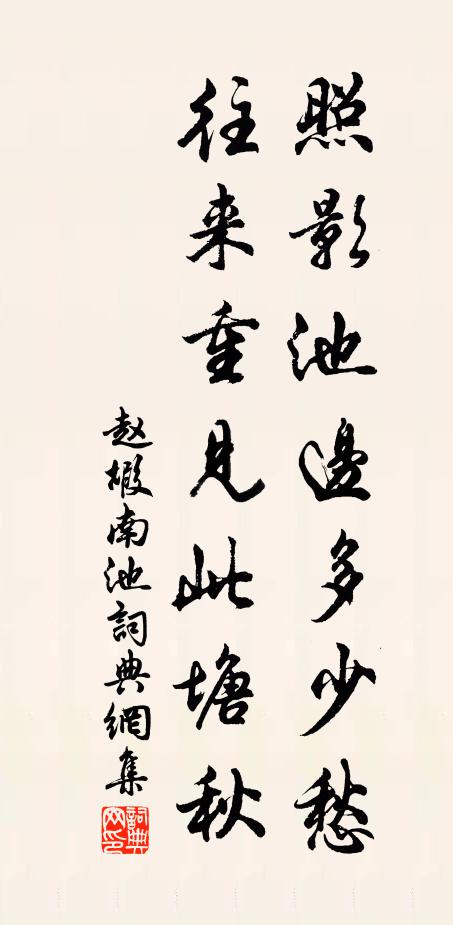 照影池邊多少愁
往来重見此塘秋
赵嘏南池詞典網集
詞典网印